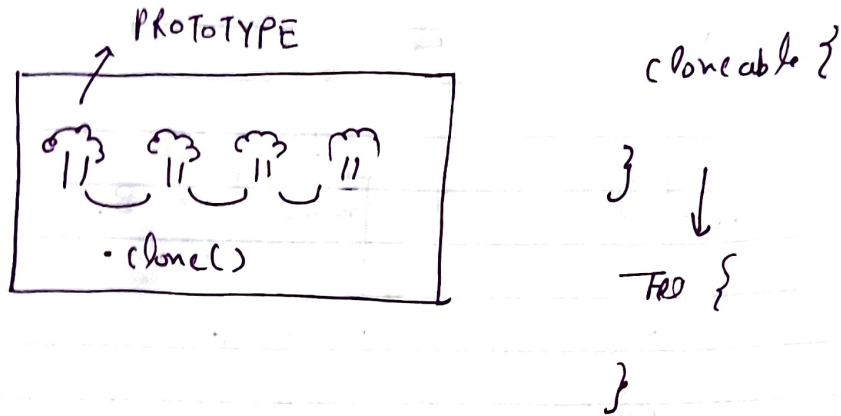 PROTOTYPE
.clone()
cloneable {
}
{
}